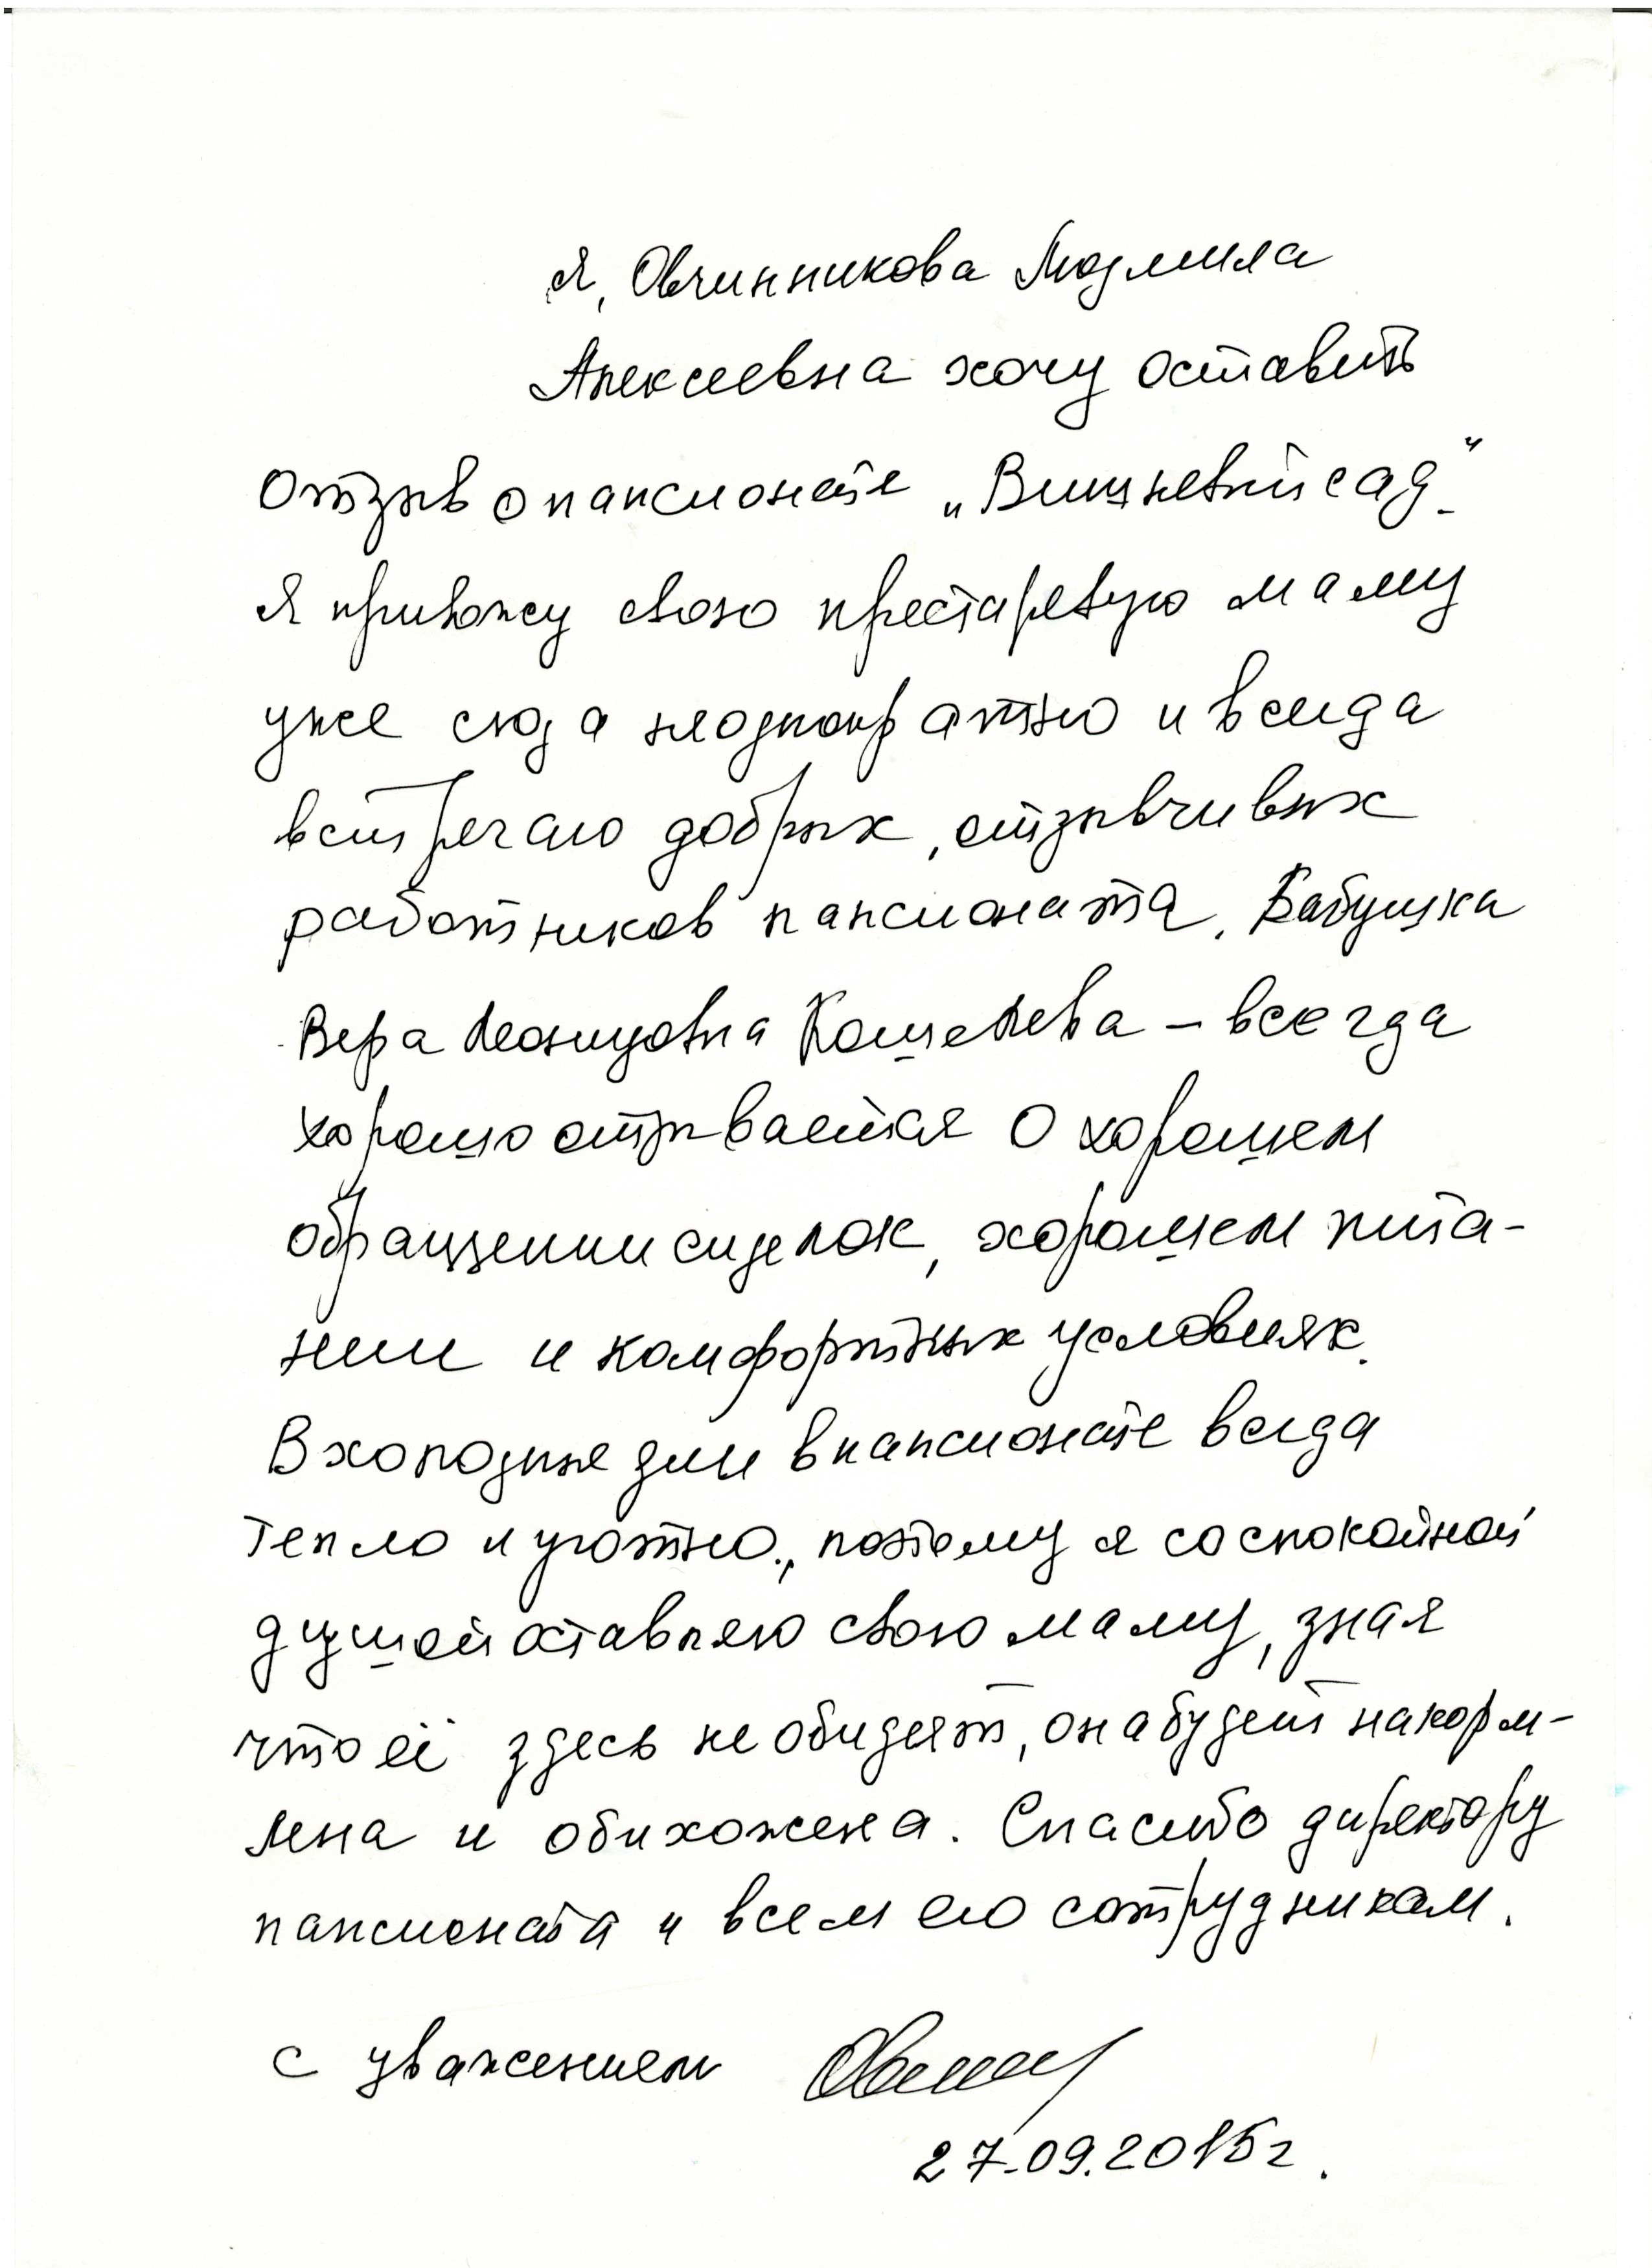 Я, Овчинникова Людмила
Алексеевна хочу оставить
Отзыв о пансионате „Вишневый сад“.
Я привожу свою престарелую маму
уже сюда неоднократно и всегда
встречаю добрых, отзывчивых
работников пансионата. Бабушка
Вера Леонидовна Кошелева – всегда
хорошо отзывается о хорошем
обращении сиделок, хорошем пита-
нии и комфортных условиях.
В холодные дни в пансионате всегда
тепло и уютно., поэтому я со спокойной
душой оставляю свою маму, зная
что её здесь не обидят, она будет накорм-
лена и обихожена. Спасибо директору
пансионата и всем его сотрудникам.
с уважением
27.09.2015г.